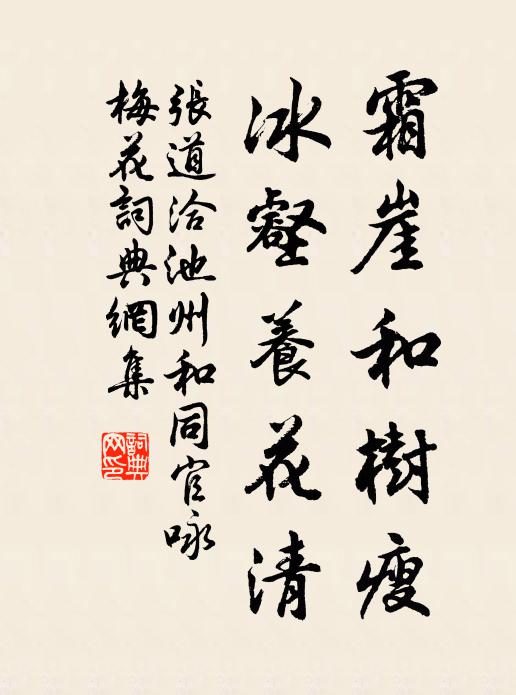 霜崖和樹瘦
冰壑養花清
張道洽池州和同官咏
梅花詞典網集
詞典網印